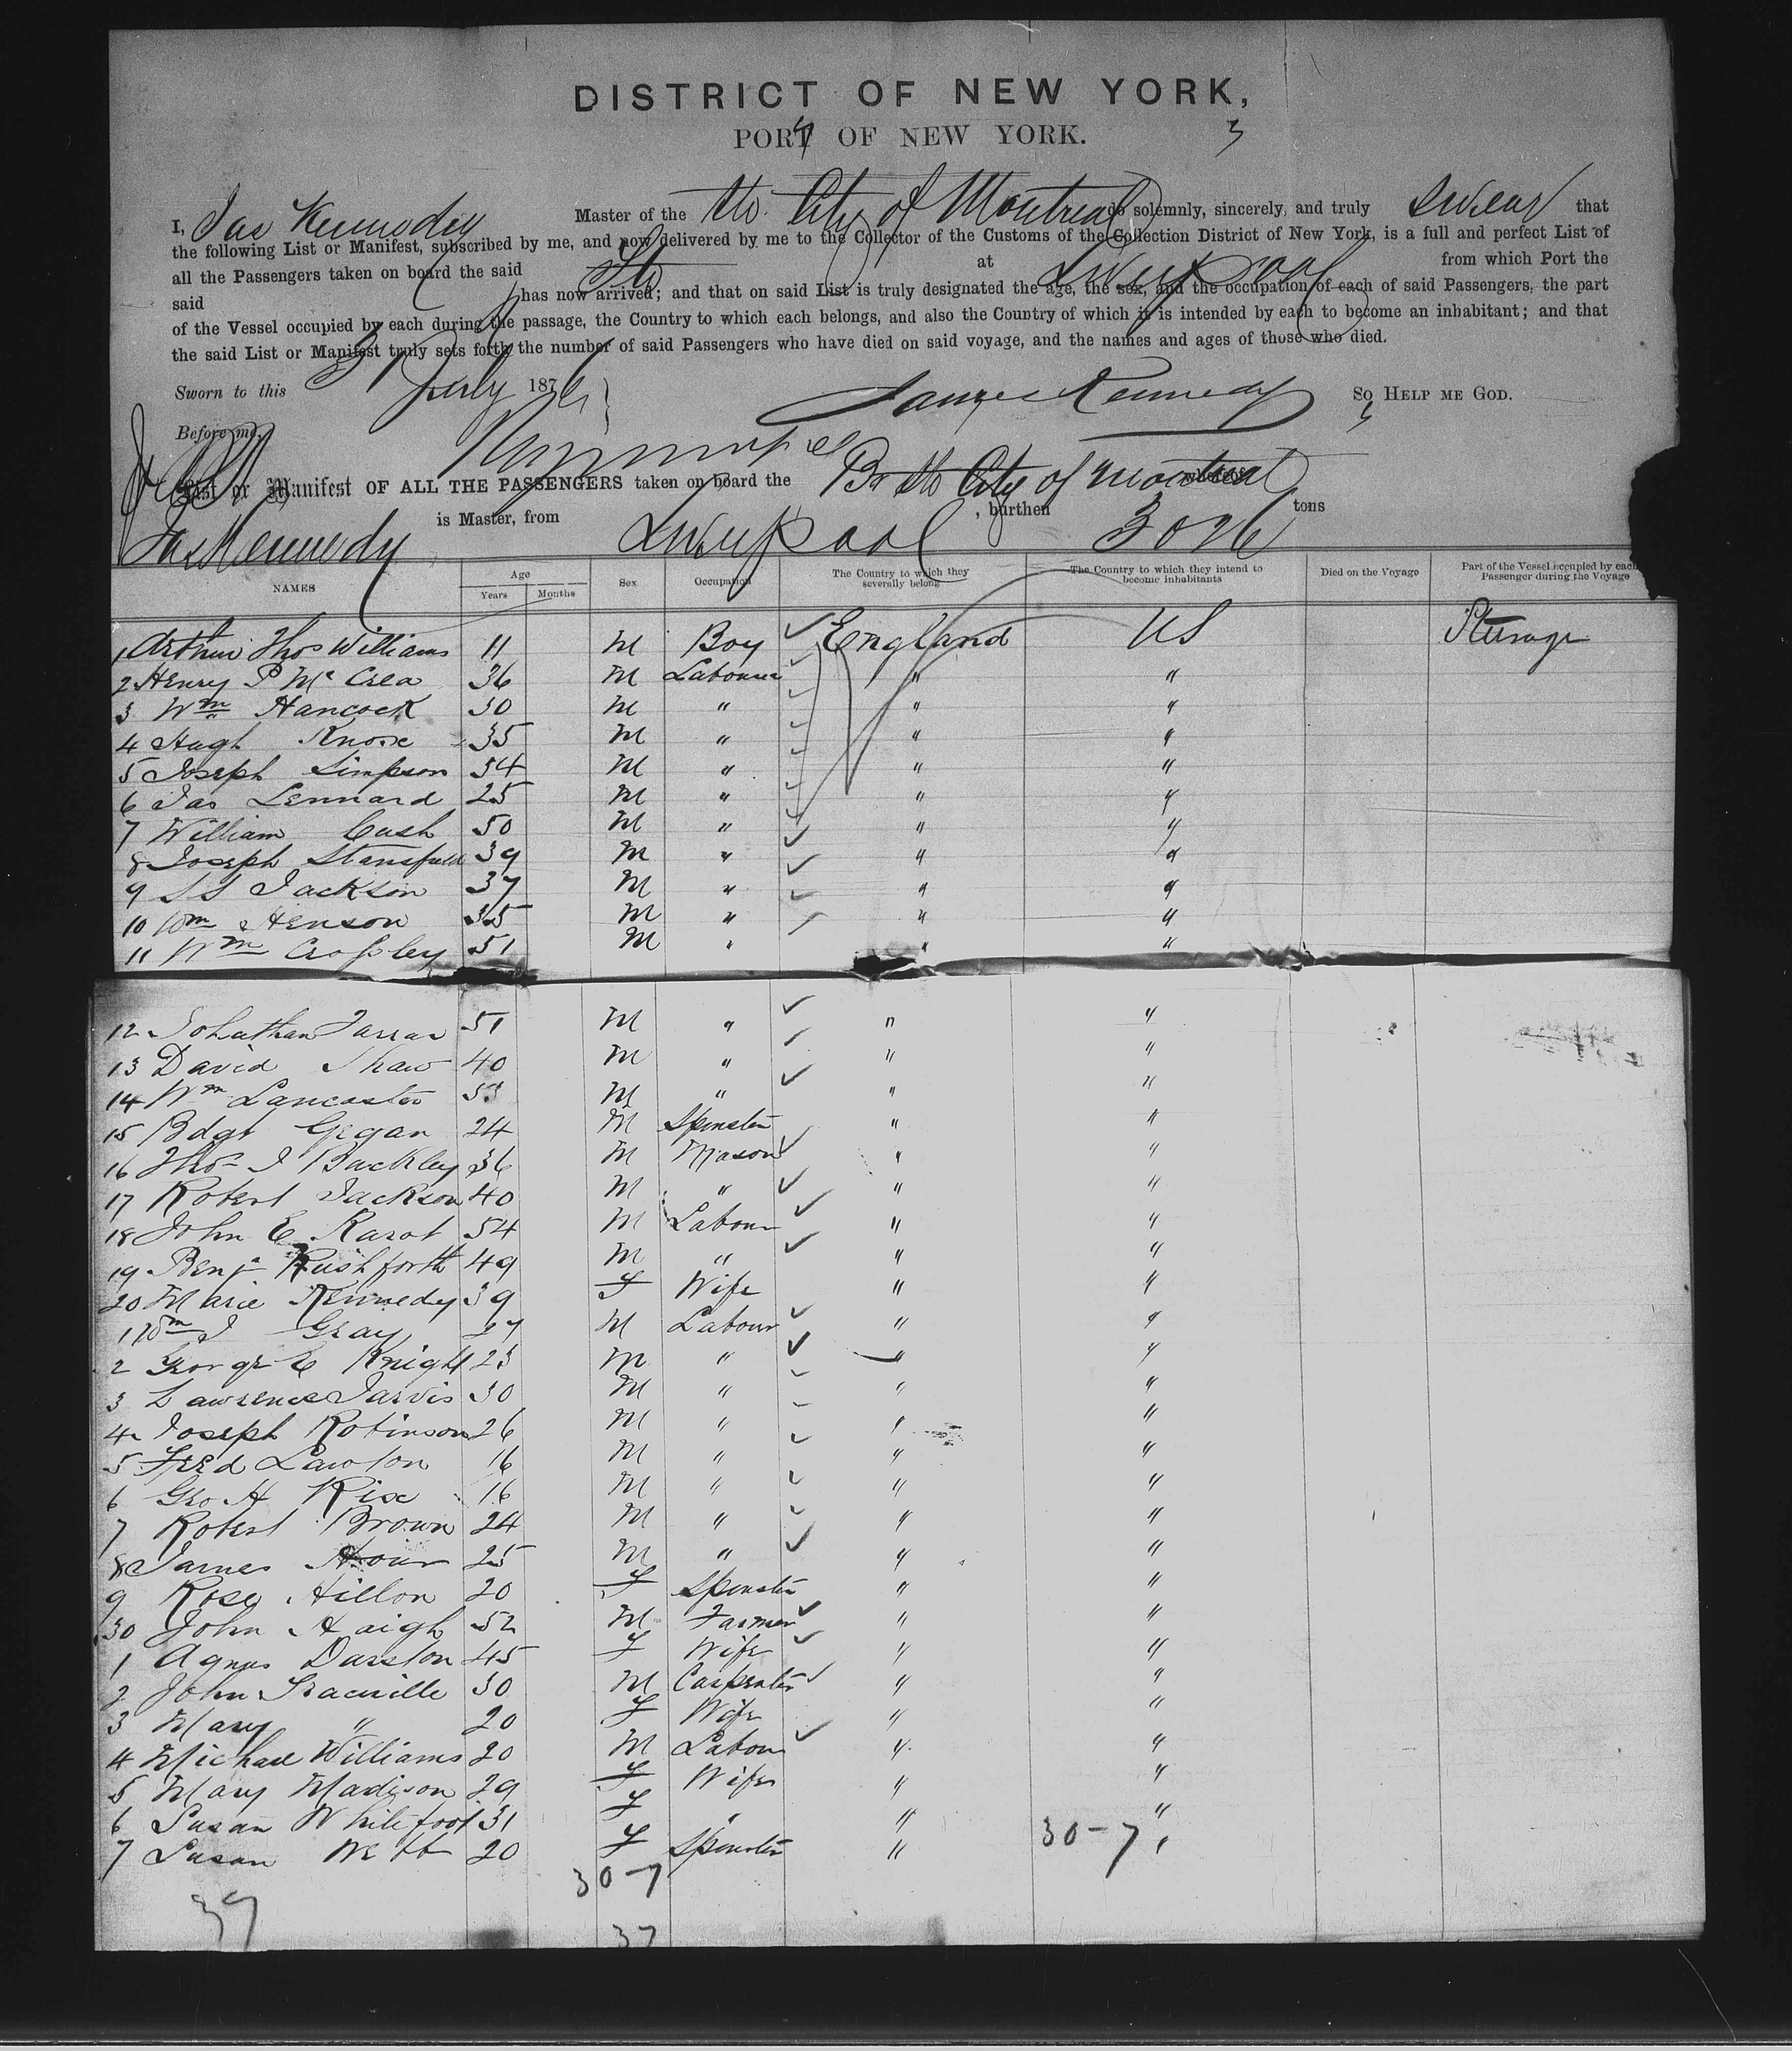 DISTRICT OF NEW YORK,
PORT OF NEW YORK.
I, Jas Kennedy Master of the Str. City of Montreal do solemnly, sincerely, and truly swear that
the following List or Manifest, subscribed by me, and now delivered by me to the Collector of the Customs of the Collection District of New York, is a full and perfect List of
all the Passengers taken on board the said Str at Liverpool from which Port the
said has now arrived; and that on said List is truly designated the age, the sex, and the occupation of each of said Passengers, the part
of the Vessel occupied by each during the passage, the Country to which each belongs, and also the Country of which it is intended by each to become an inhabitant; and that
the said List or Manifest truly sets forth the number of said Passengers who have died on said voyage, and the names and ages of those who died.
Sworn to this 31 July 187 James Kennedy So HELP ME GOD.
Before me,
List or Manifest OF ALL THE PASSENGERS taken on board the Br Str City of Montreal whereof
Jas Kennedy is Master, from Liverpool , burthen 3026 tons
NAMES Age Years Months Sex Occupation The Country to which they severally belong The Country to which they intend to become inhabitants Died on the Voyage Part of the Vessel occupied by each Passenger during the Voyage
1 Arthur Thos Williams 11 M Boy England US Steerage
2 Henry P McCrea 36 M Labourer " "
3 Wm Hancock 30 M " " "
4 Hugh Knose 35 M " " "
5 Joseph Simpson 54 M " " "
6 Jas Lennard 25 M " " "
7 William Cush 50 M " " "
8 Joseph Stansfield 39 M " " "
9 S S Jackson 37 M " " "
10 Wm Henson 35 M " " "
11 Wm Crossley 51 M " " "
12 Johathan Farrar 51 M " " "
13 David Shaw 40 M " " "
14 Wm Lancaster 53 M " " "
15 Bdgt Gegan 24 M Spinster " "
16 Thos J Buckley 36 M Mason " "
17 Robert Jackson 40 M " " "
18 John E Karot 54 M Labour " "
19 Benj Rushforth 49 M " " "
20 Marie Kennedy 39 F Wife " "
1 Wm J Gray 27 M Labour " "
2 George E Knight 23 M " " "
3 Lawrence Jarvis 30 M " " "
4 Joseph Robinson 26 M " " "
5 Fred Lawton 16 M " " "
6 Geo H Rise 16 M " " "
7 Robert Brown 24 M " " "
8 James 25 M " " "
9 Rose Hillon 20 F Spinster " "
30 John Haigh 52 M Farmer " "
1 Agnes Darston 45 F Wife " "
2 John 30 M Carpenter " "
3 Mary " 20 F Wife " "
4 Michael Williams 20 M Labour " "
5 Mary Madison 29 F Wife " "
6 Susan Whitefoot 31 F " " "
7 Susan Webb 20 F Spinster " "
30-7
30-7
37
37